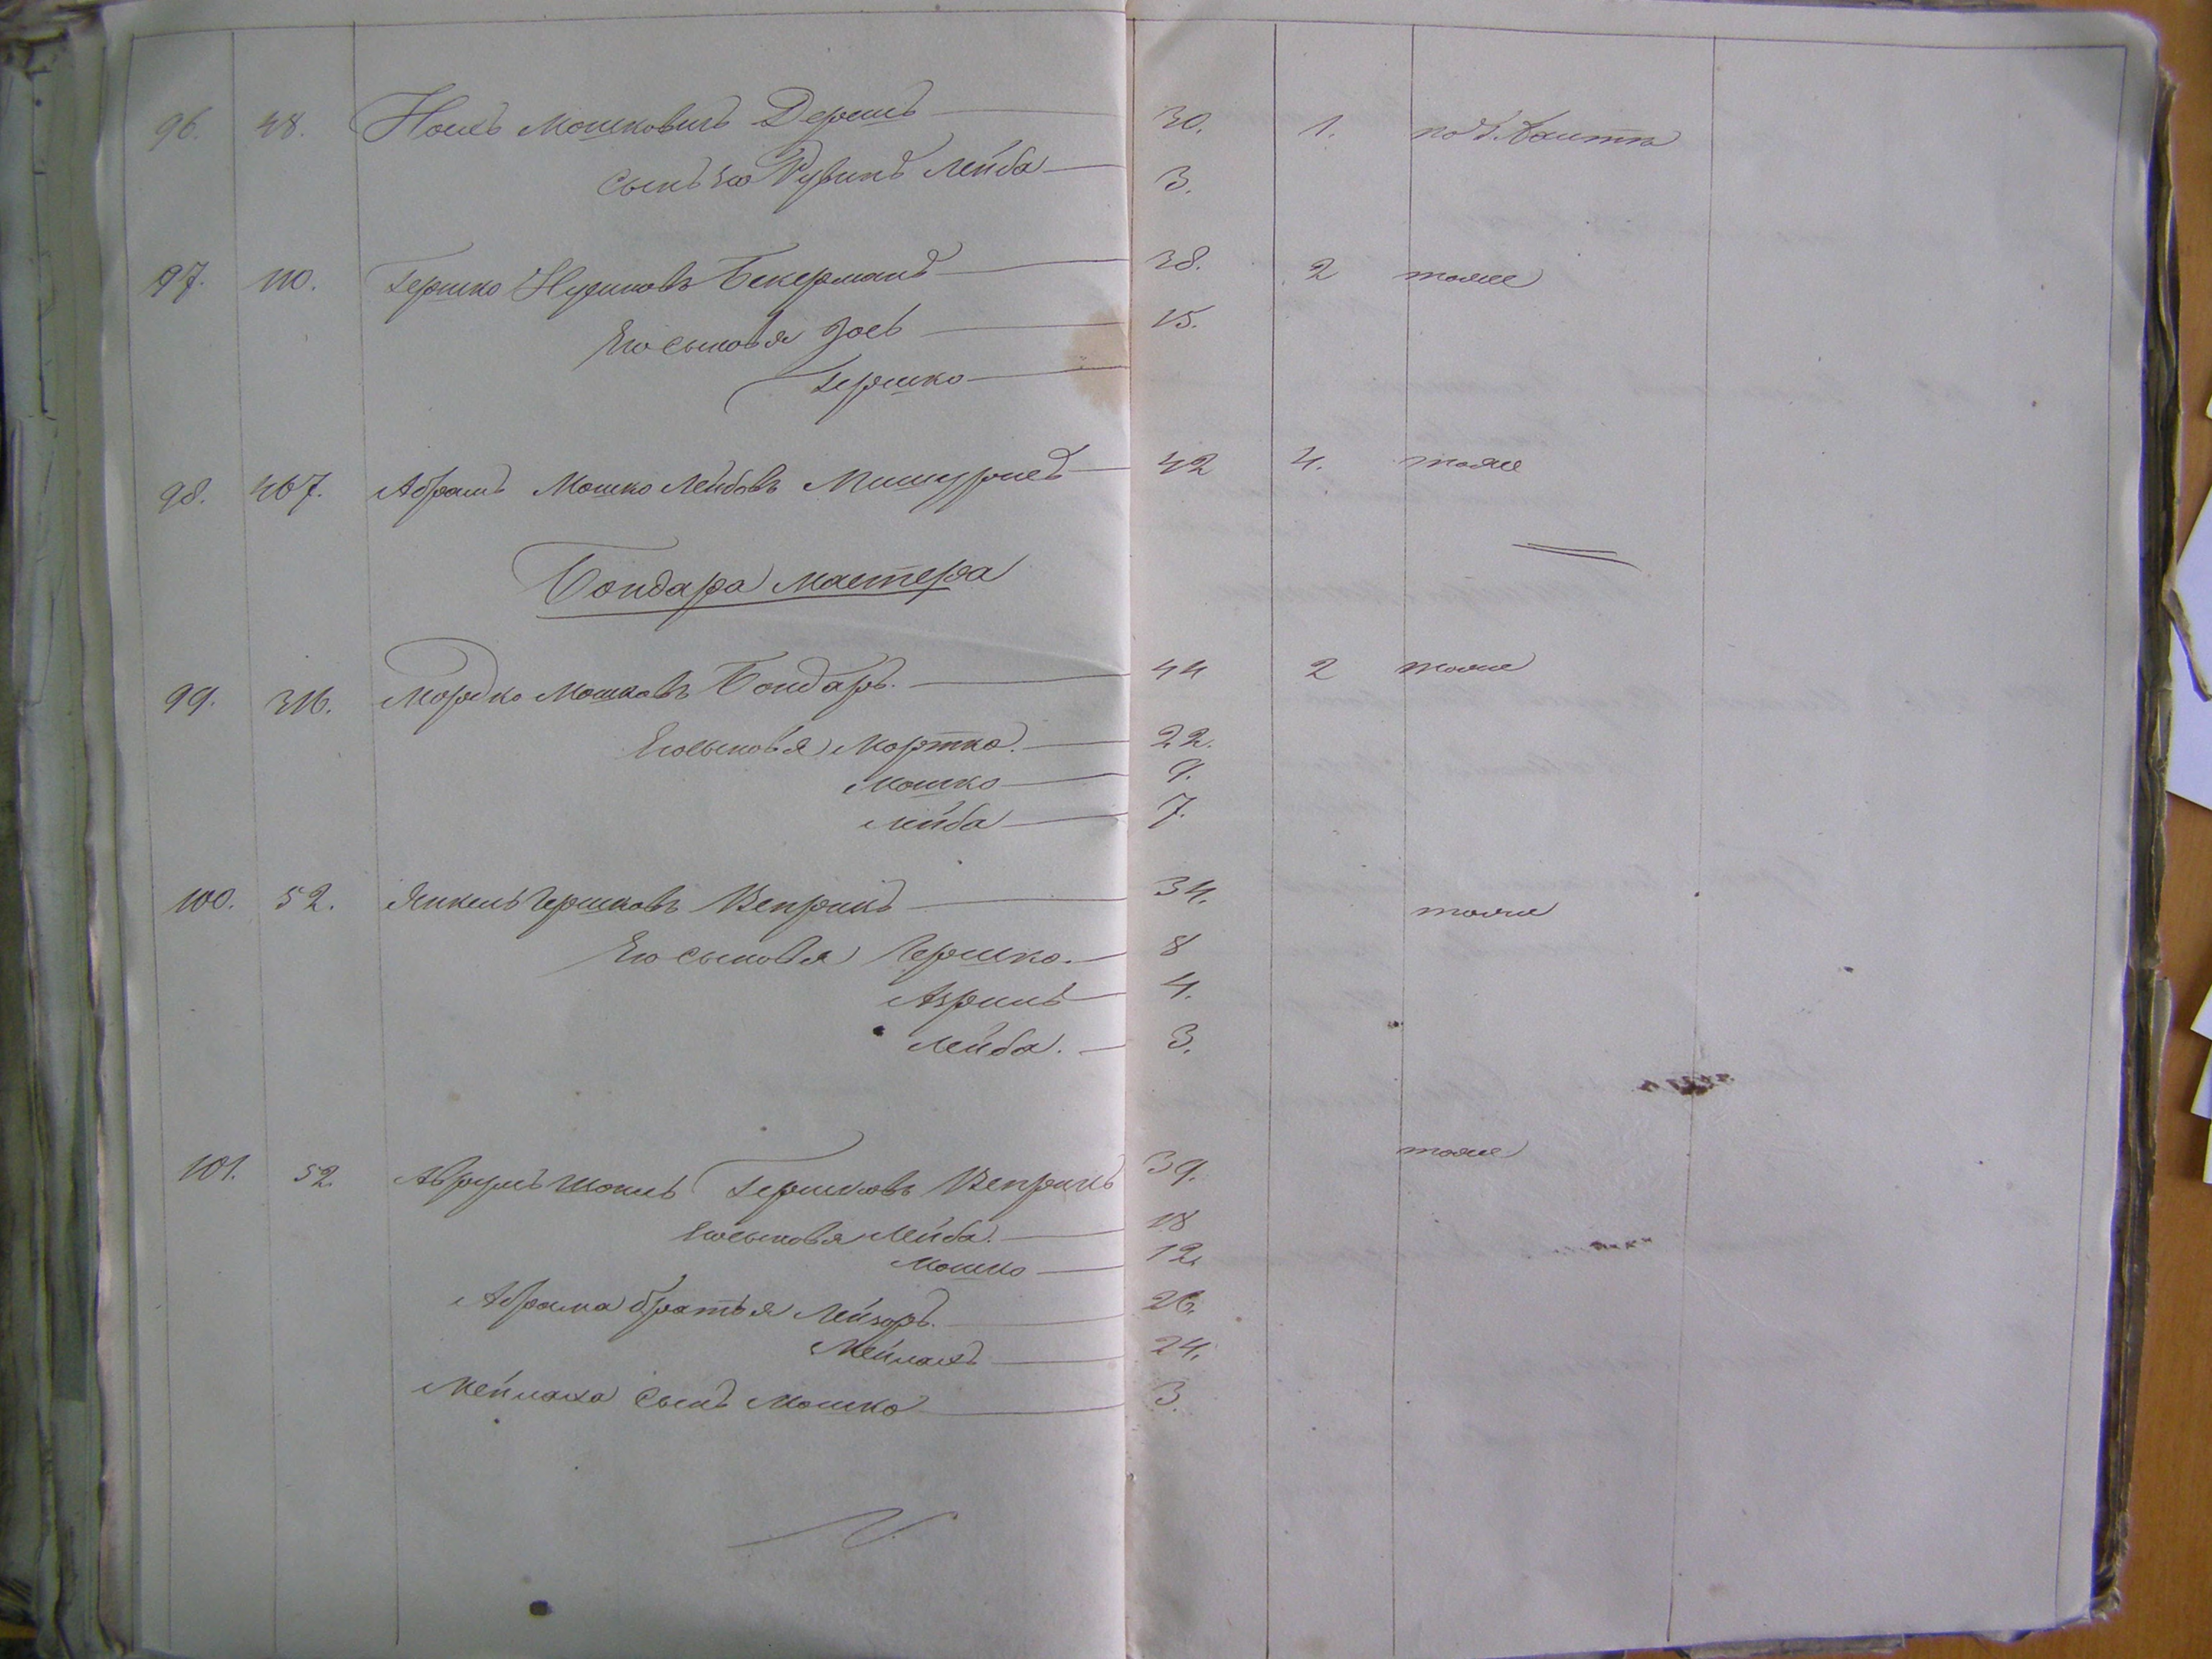 96. 48. Ноихъ Мошковичъ Дершъ 30. 1.
сынъ его Рувинъ Лейба 3.
97. 110. Гершко Нусиновъ Бекерманъ 38. 2 тоже
Его сыновья Іось 15.
Гершко
98. 467. Абрамъ Мошко Лейбовъ 42 4. тоже
Бондара мастера
99. 316. Мордко Мошковъ Бондарь. 44 2 тоже
Его сыновья Мортко. 22.
Мошко 9.
Лейба 7.
100. 52. Янкель Гершковъ Веприкъ 34. тоже
Его сыновья Гершко. 8
Азриль 4.
Лейба. 3.
101. 52. Аврумъ Шоиль Гершковъ Веприкъ 39. тоже
Его сыновья Лейба. 18
Мошко 12.
Абрама братья Лейзоръ. 26.
Мейлахъ 24.
Мейлаха сынъ Мошко 3.